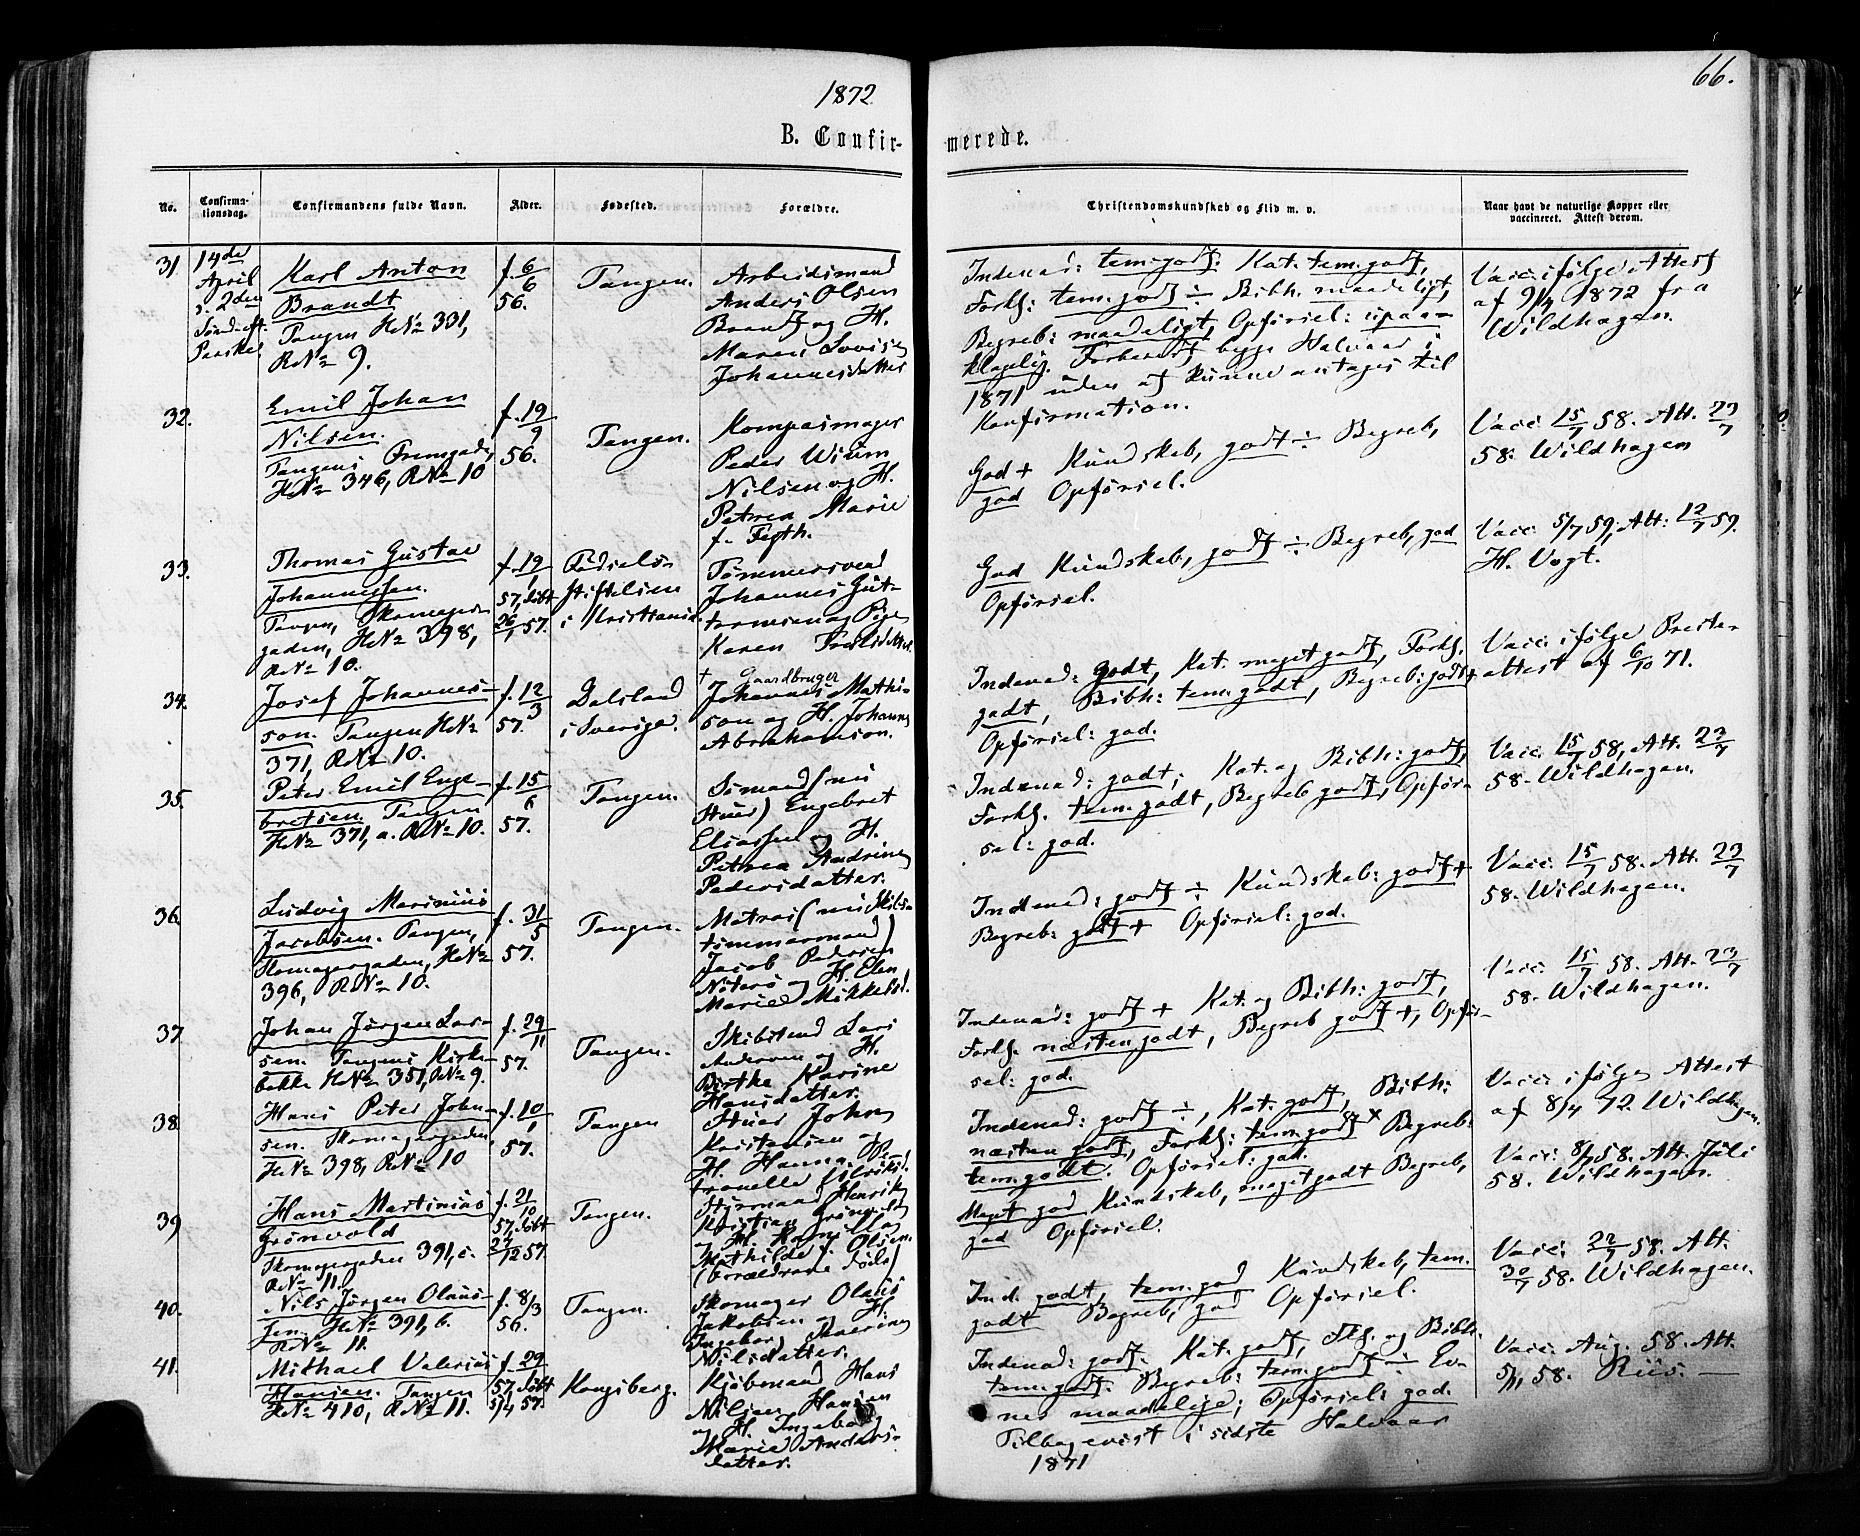 1872
66.
B. Confir-
merede.
No.
Confirma-
tionsdag.
Confirmandens fulde Navn.
Alder.
Fødested.
Forældre.
Christendomskundskab og Flid m. v.
Naar havt de naturlige Kopper eller
vaccineret. Attest derom.
31.
14de
April
s. 2den
Sønd. eft.
Paaske.
Karl Anton
Brandt
Tangen HNo 331,
RNo 9.
f. 6/6
56.
Tangen.
Arbeidsmand
Anders Olsen
Brandt og H.
Maren Lovise
Johannesdatter
Indenad: tem. godt. Kat. tem. godt,
Forkl: tem. godt ÷ Bibh. maadeligt,
Begreb: maadeligt, Opførsel: upaa-
klagelig. Forberedt begge Halvaar i
1871 uden at kunne antages til
Konfirmation.
Vacc. ifølge Attest
af 9/4 1872 fra
Wildhagen.
32.
Emil Johan
Nilsen.
Tangens
HNo 346, RNo 10
f. 19/9
56.
Tangen.
Kompasmager
Peder Wium
Nilsen og H.
Petrea Marie
f.
God + Kundskab, godt ÷ Begreb,
god Opførsel.
Vacc. 15/7 58. Att. 23/7
58. Wildhagen
33.
Thomas Gustav
Johannessen.
Tangen, Skomager-
gaden, HNo 398,
RNo 10.
f. 19/1
57, døbt
26/1 57.
Fødsels-
stiftelsen
i Kristiania.
Tømmersvend
Johannes Gut-
tormsen og Pige
Karen
God Kundskab, godt ÷ Begreb, god
Opførsel.
Vacc. 5/7 59, Att: 12/7 59.
H. Vogt.
34.
Josef Johannes-
son. Tangen HNo
371, RNo 10.
f. 12/3
57.
Dalsland
i Sverige.
+ Gaardbruger
Johannes Mathi-
son og H. Johanna
Abrahamson.
Indenad: godt, Kat. meget godt, Forkl.
godt, Bibh: tem. godt, Begreb: godt +
Opførsel: god.
Vacc. ifølge Preste-
attest af 6/10 71.
35.
Peter Emil Enge-
bretsen Tangen
HNo 371, a. RNo 10.
f. 15/6
57.
Tangen.
Sømand (nu
Stuer) Engebret
Eliassen og H.
Petrea Andrine
Pedersdatter.
Indenad: godt; Kat. og Bibh: godt,
Forkl. tem. godt, Begreb godt, Opfør-
sel: god.
Vacc. 15/7 58, Att. 23/7
58. Wildhagen.
36.
Ludvig Marinius
Jacobsen. Tangen,
Skomagergaden, HNo
396, RNo 10.
f. 31/5
57.
Tangen.
Matros (nu Skibs-
tømmermand)
Jacob Pedersen
Nøterø og H. Elen
Marie Mikkelsd.
Indenad: godt ÷ Kundskab: godt +
Begreb: godt + Opførsel: god.
Vacc. 15/7 58. Att. 23/7
58. Wildhagen.
37.
Johan Jørgen Lar-
sen. Tangens Kirke-
bakke HNo 351, RNo 9.
f. 29/11
57.
Tangen.
Skibstmd Lars
Andersen og H.
Birthe Karine
Hansdatter.
Indenad: godt + Kat. og Bibh: godt,
Forkl. næsten godt, Begreb godt +, Opfør-
sel: god.
Vacc. 15/7 58. Att. 23/7
58. Wildhagen.
38.
Hans Peter John-
sen. Skomagergaden,
HNo 398, RNo 10
f. 10/1
57.
Tangen
Stuer John
Kristensen og
H. Hanna Pe-
tronelle Ulriksd.
Indenad: godt ÷, Kat: godt, Bibh:
næsten godt, Forkl: tem. godt Begreb:
tem. godt. Opførsel: god.
Vacc. ifølge Attest
af 8/4 72. Wildhagen.
39.
Hans Martinius
Grønvold
Skomagergaden 391, c.
RNo 11.
f. 21/10
57, døbt
27/12 57.
Tangen.
Styrmand Henrik
Kristian Grønvold
og H.
Mathilde f. Olsen.
(Forældrene døde)
Meget god Kundskab, meget godt Begreb,
god Opførsel.
Vacc. 8/7 58. Att. Juli
58. Wildhagen.
40.
Nils Jørgen Olaus-
sen. HNo 391, b.
RNo 11.
f. 8/3
56.
Tangen.
Skomager Olaus
Jakobsen og H.
Ingeborg
Nilsdatter.
Ind. godt, tem. god Kundskab, tem.
godt Begreb, god Opførsel.
Vacc. 22/7 58. Att.
30/7 58. Wildhagen.
41.
Mikhael Valerius
Hansen. Tangen
HNo 410, RNo 11.
f. 29
57, døbt
5/4 57.
Kongsberg.
Kjøbmand Hans
Nilsen Hansen
og H. Ingeborg
Marie Anders-
datter.
Indenad: godt. Kat. godt, Fkl. og Bibh.
tem. godt. Begreb: tem. godt ÷ Ev-
ner maadelige; Opførsel: god.
Tilbagevist i sidste Halvaar
1871
Vacc. Aug. 58. Att.
58. Riis. —